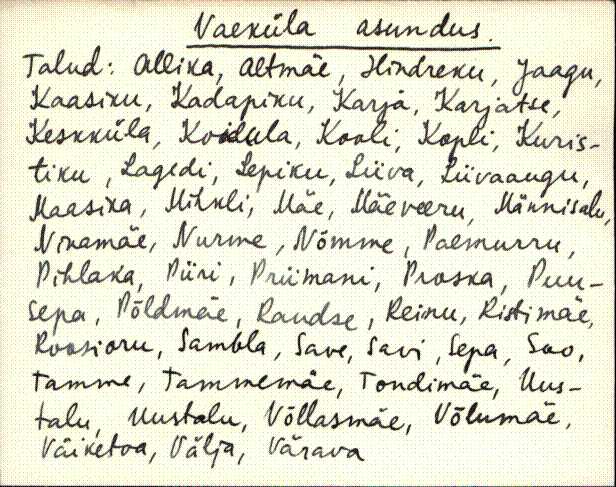 Vaeküla asundus.
Talud: Allika, Altmäe, Hindreku, Jaagu,
Kaasiku, Kadapiku, Karja, Karjatse,
Keskküla, Koidula, Kooli, Kopli, Kuris-
tiku, Lagedi, Lepiku, Liiva, Liivaaugu,
Maasika, Mihkli, Mäe, Mäeveeru, Männisalu,
Ninamäe, Nurme, Nõmme, Paemurru,
Pihlaka, Piiri, Priimani, Proska, Puu-
sepa, Põldmäe, Raudse, Reinu, Ristimäe,
Roosioru, Sambla, Save, Savi, Sepa, Soo,
Tamme, Tammemäe, Tondimäe, Uus-
talu, Uustalu, Võllasmäe, Võlumäe,
Väiketoa, Välja, Värava